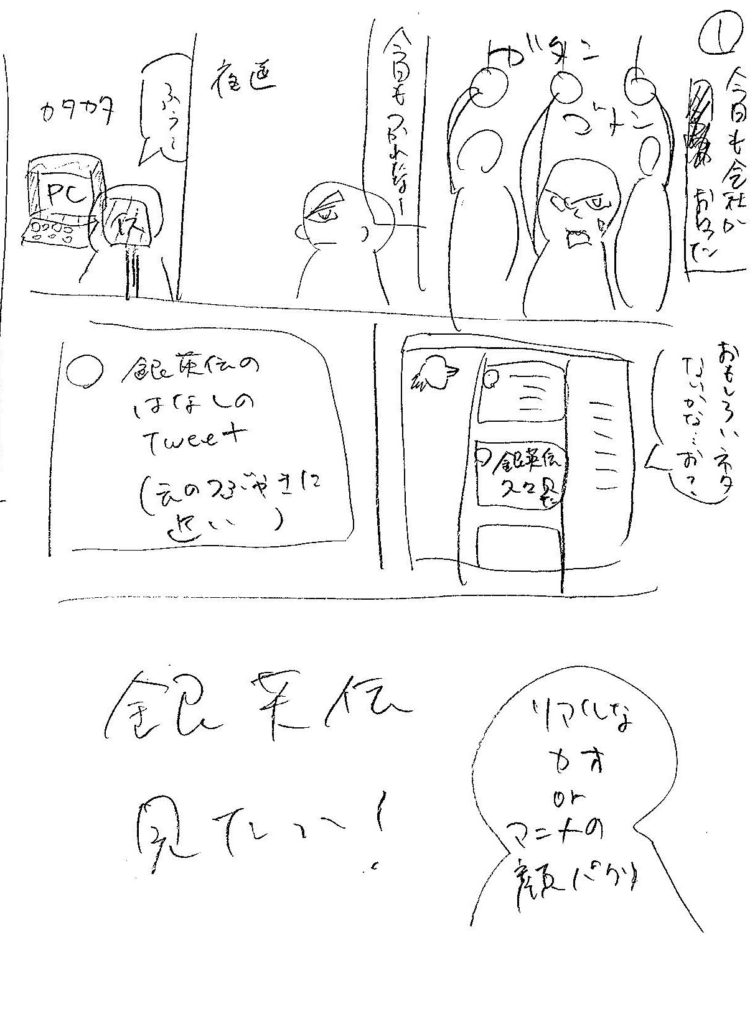 ①
今日も会社が
おわった
ガタン
ゴトン
今日もつかれたなー
夜道
ふぅ〜
カタカタ
PC
イス
おもしろいネタ
ないかな…お?
銀英伝
久々見た
銀英伝の
はなしの
Tweet
(元のつぶやきに
近い)
銀英伝
見たい!
リアルな
カオ
or
マニナの
顔パクリ